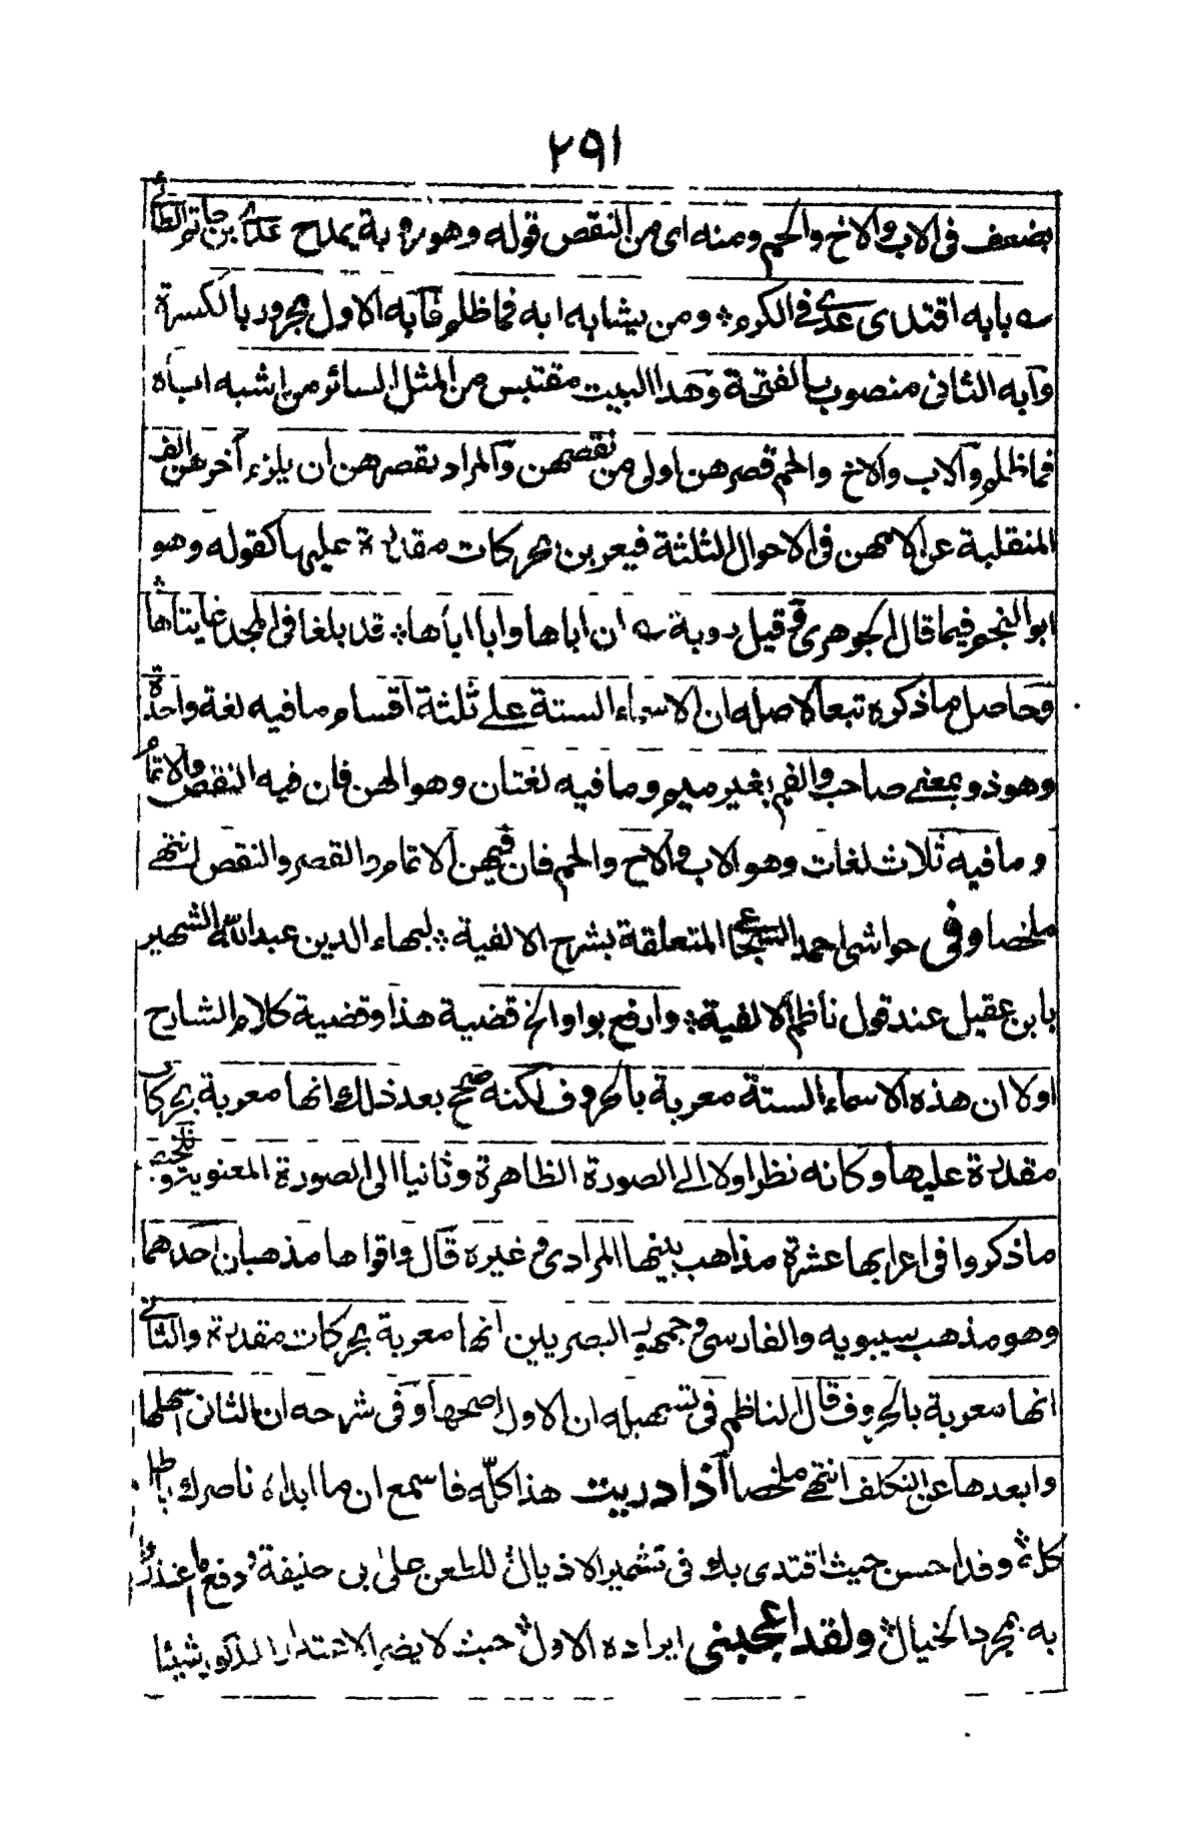 ٢٩١
يضعف فى الاب والاخ والحم ومنه اى من النقص قوله وهو روبة يمدح عدى بن حاتم الطائى
بابه اقتدى عدى فى الكرم ومن يشابه ابه فما ظلم فابه الاول مجرور بالكسرة
وابه الثانى منصوب بالفتحة وهذا البيت مقتبس من المثل السائر من اشبه اباه
فما ظلم والاب والاخ والحم قصرهن اولى من نقصهن والمراد بقصرهن ان يلزم آخرهن الف
المنقلبة عن لامهن فى الاحوال الثلثة فيعربن بحركات مقدرة عليها كقوله وهو
ابو النجم فيما قال الجوهرى وقيل روبة ان اباها وابا اباها قد بلغا فى المجد غايتاها
وحاصل ما ذكره تبعا لاصله ان الاسماء الستة على ثلثة اقسام ما فيه لغة واحدة
وهو ذو بمعنى صاحب والفم بغير ميم وما فيه لغتان وهو الهن فان فيه النقص والاتمام
وما فيه ثلاث لغات وهو الاب والاخ والحم فان فيهن الاتمام والقصر والنقص انتهى
ملخصا وفى حواشى احمد السجاعى المتعلقة بشرح الالفية لبهاء الدين عبد الله الشهير
بابن عقيل عند قول ناظم الالفية وارفع بواو الخ قضية هذا وقضية كلام الشارح
اولا ان هذه الاسماء الستة معربة بالحروف لكنه صحح بعد ذلك انها معربة بحركات
مقدرة عليها وكانه نظر اولا الى الصورة الظاهرة وثانيا الى الصورة المعنوية
ما ذكروا فى اعرابها عشرة مذاهب بينها المرادى وغيره قال واقواها مذهبان احدهما
وهو مذهب سيبويه والفارسى وجمهور البصريين انها معربة بحركات مقدرة والثانى
انها معربة بالحروف قال الناظم فى تسهيله ان الاول اصحها وفى شرحه ان الثانى اسهلها
وابعدها عن التكلف انتهى ملخصا اذا دريت هذا كله فاسمع ان ما ابداه ناصرك باطل
كله وقد احسن حيث اقتدى بك فى تشمير الاذيال للطعن على ابى حنيفة ودفع ما اعتذر
به بمجرد الخيال ولقد اعجبنى ايراده الاول حيث لا يضر الاعتذار المذكور شيئا